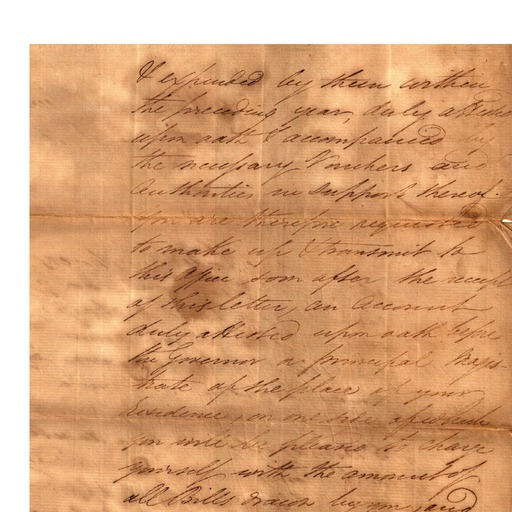 & expended by them within
the preceding year, duly attested
upon oath & accompanied by
the necessary Vouchers and
Authorities in Support thereof.
You are therefore requested
to make up & transmit to
this Office soon after the receipt
of this letter, an Account
duly attested upon oath before
the Governor or principal Magis-
trate of the place of your
residence, on one side of which
you will be pleased to charge
yourself with the amount of
all Bills drawn by you, and